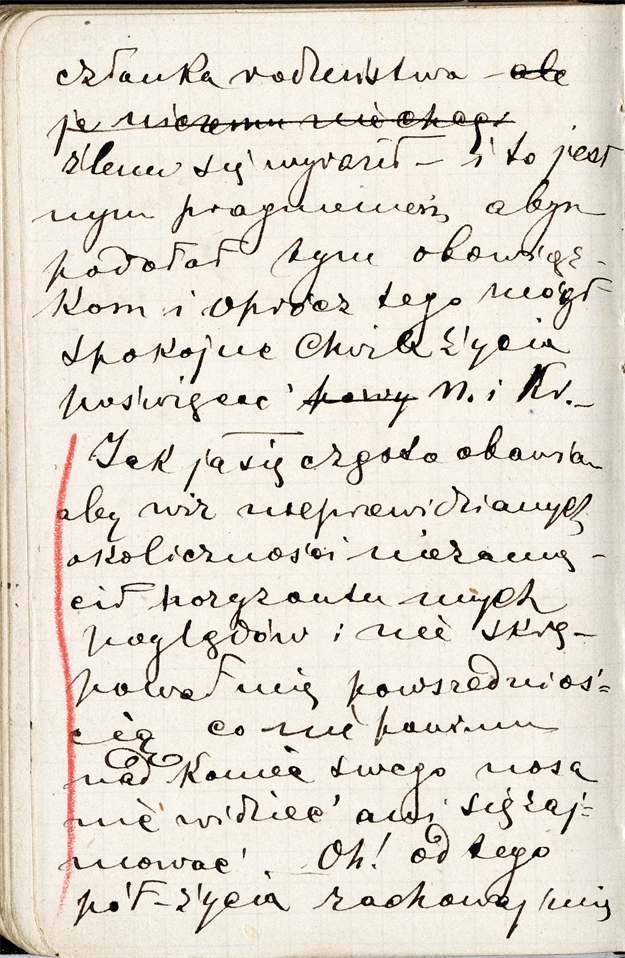 członka rodzeństwa – ale
ja niczemu nie chcę.
źlem się wyraził – i to jest
mym pragnieniem, abym
podołał tym obowiąz-
kom i oprócz tego mógł
spokojne chwile życia
poświęcać N. i Kr. –
Jak ja się często obawiam
aby wir nieprzewidzianych
okoliczności nie zamą-
cił horyzontu mych
poglądów i nie skrę-
pował mię powszednioś-
cią co nie powinna
nad koniec swego nosa
nie widzieć ani się zaj-
mować Oh! od tego
pół-życia zachowaj mię